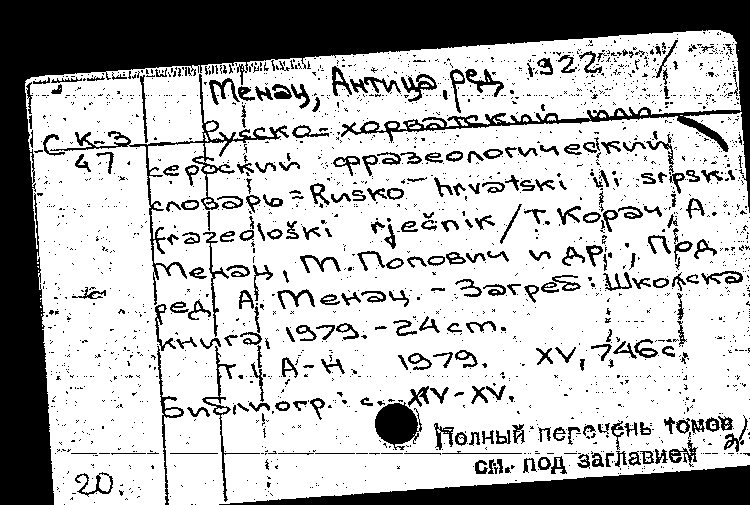 Менац, Антица, ред. 1922
С К-3
47
Русско-хорватский или
сербский фразеологический
словарь = Rusko-hrvatski ili srpski
frazeološki rječnik / Т. Корач, А.
Менац, М. Попович и др.; Под
ред. А. Менац. - Загреб: Школска
книга, 1979. - 24 cm.
Т. 1. А-Н. 1979. XV, 746 с
Библиогр.: с. XIV-XV.
Полный перечень томов
см. под заглавием
20.